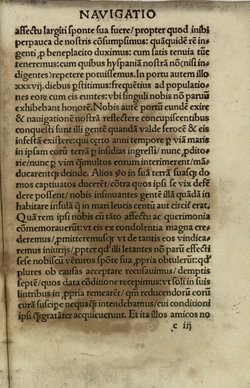 NAVIGATIO
affectu largiti sponte sua fuere/ propter quod inibi
perpauca de nostris cōsumpsimus: quæ quidē rē in
genti ꝓ beneplacito duximus: cum satis tenuia tūc
teneremus: cum quibus hyspaniā nostrā nō (nisi in
digentes) repetere potuissemus. In portu autem illo
xxxvij. diebus pstitimus: frequētius ad populatio
nes eorū cum eis eunteſ vbi singuli nobis nō paruū
exhibebant honorē. Nobis autē portū eundē exire
& nauigationē nostrā reflectere concupiscentibus
conquesti sunt illi gentē quandā valde ferocē & eis
infestā existere: qui certo anni tempore ꝑ viā maris
in ipsam eorū terrā ꝑ insidias ingressi/ nunc ꝓdito
rie/ nunc ꝑ vim ꝗmultos eorum interimerent/ mā
ducarentqꝫ deinde. Alios vo in suā terrā suasqꝫ do
mos captiuatos ducerēt/ cōtra quos ipsi se vix defē
dere possent/ nobis insinuantes gentē illā quādā in
habitare insulā/ quæ in mari leucis centū aut circit erat,
Quā rem ipsi nobis cū tāto affectu ac querimonia
cōmemorauērūt: vt eis ex condolentia magna cre
deremus/ promitteremusqꝫ: vt de tantis eos vindica
remus iniurijs/ propter qd illi letantes nō parū effecti
sese nobiscū vēturos spōte sua ꝓpria obtulerūt: qd
plures ob causas acceptare recusauimus/ demptis
septē/ quos data cōditione recepimus: vt soli in suis
lintribus in ꝓpria remearēt/ qm̄ reducendorū eorū
curā suscipe nequaqꝫ intendebamus/ cui conditioni
ipsi ꝗgratāter acquieuerunt. Et ita illos amicos no
c iij